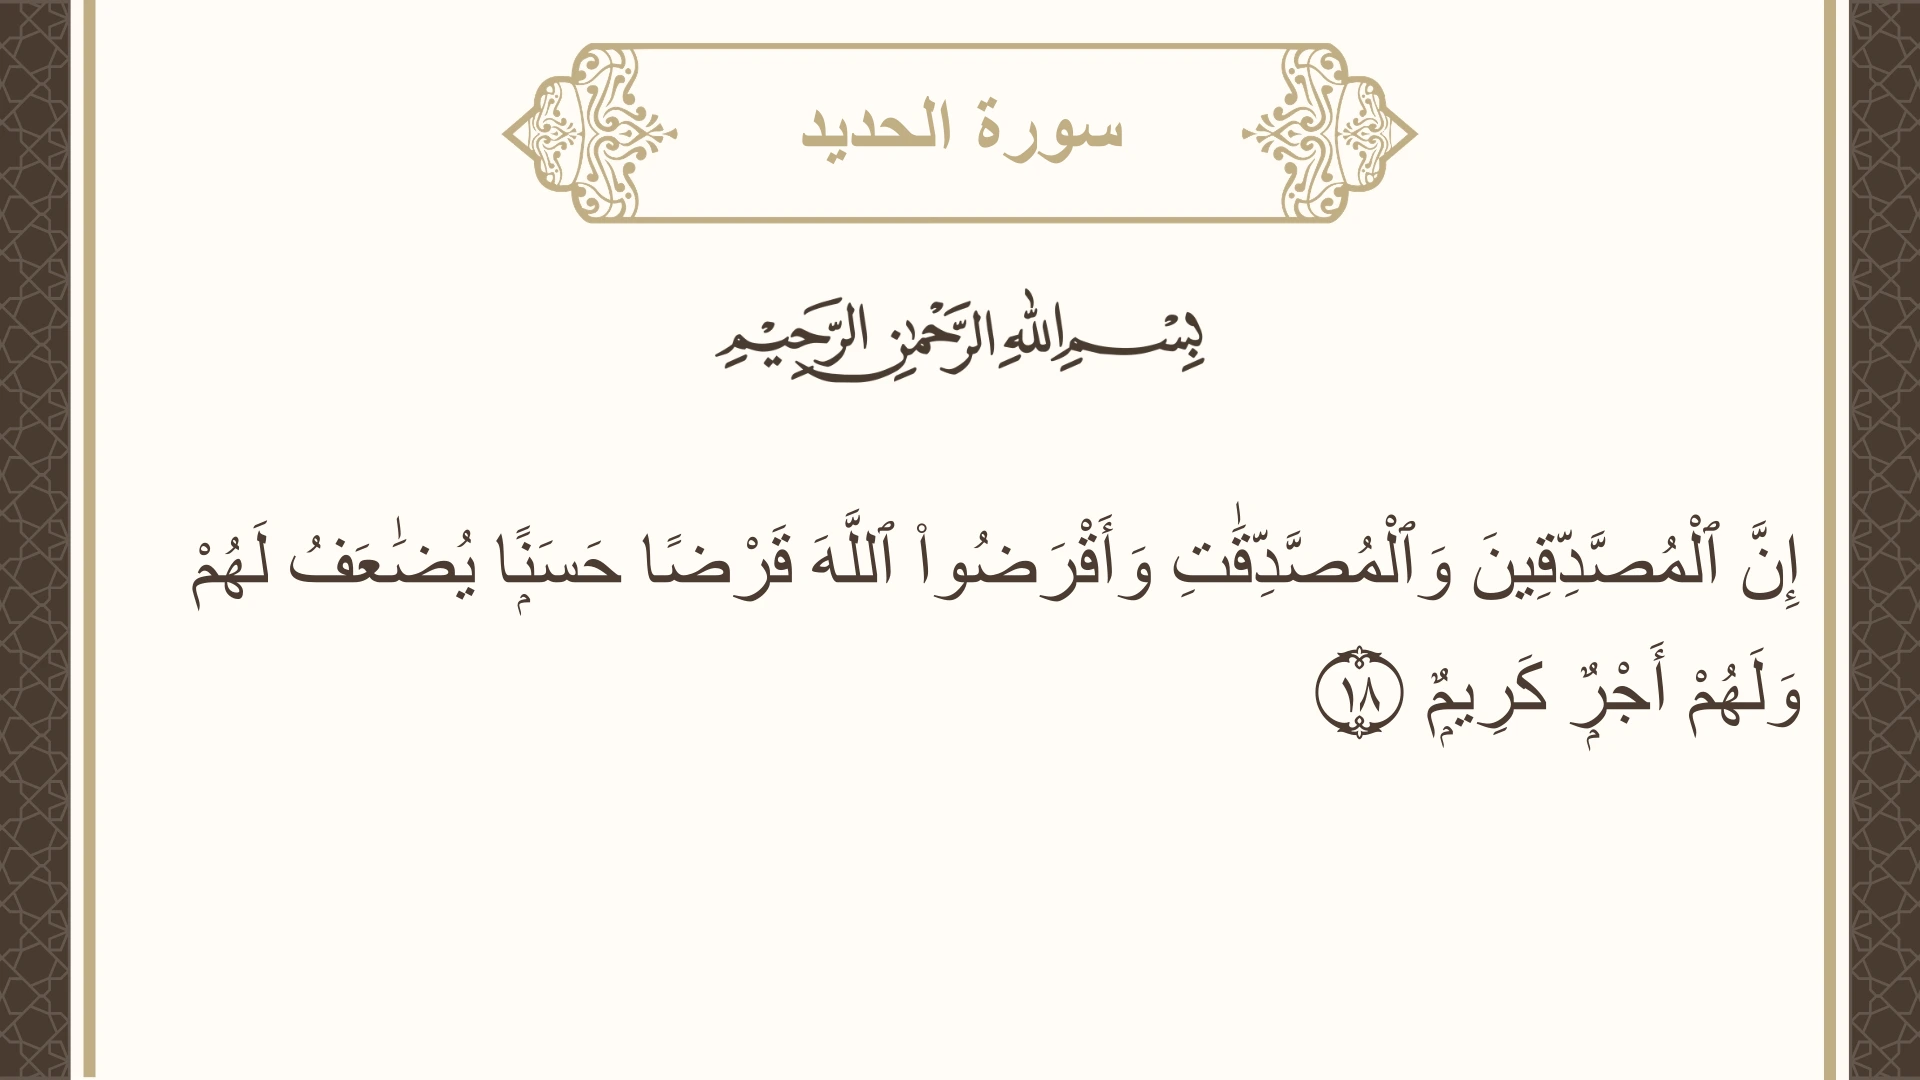 سورة الحديد
بِسْمِ اللهِ الرَّحْمٰنِ الرَّحِيْمِ
إِنَّ ٱلْمُصَّدِّقِينَ وَٱلْمُصَّدِّقَٰتِ وَأَقْرَضُوا۟ ٱللَّهَ قَرْضًا حَسَنًۭا يُضَٰعَفُ لَهُمْ
وَلَهُمْ أَجْرٌۭ كَرِيمٌۭ ١٨